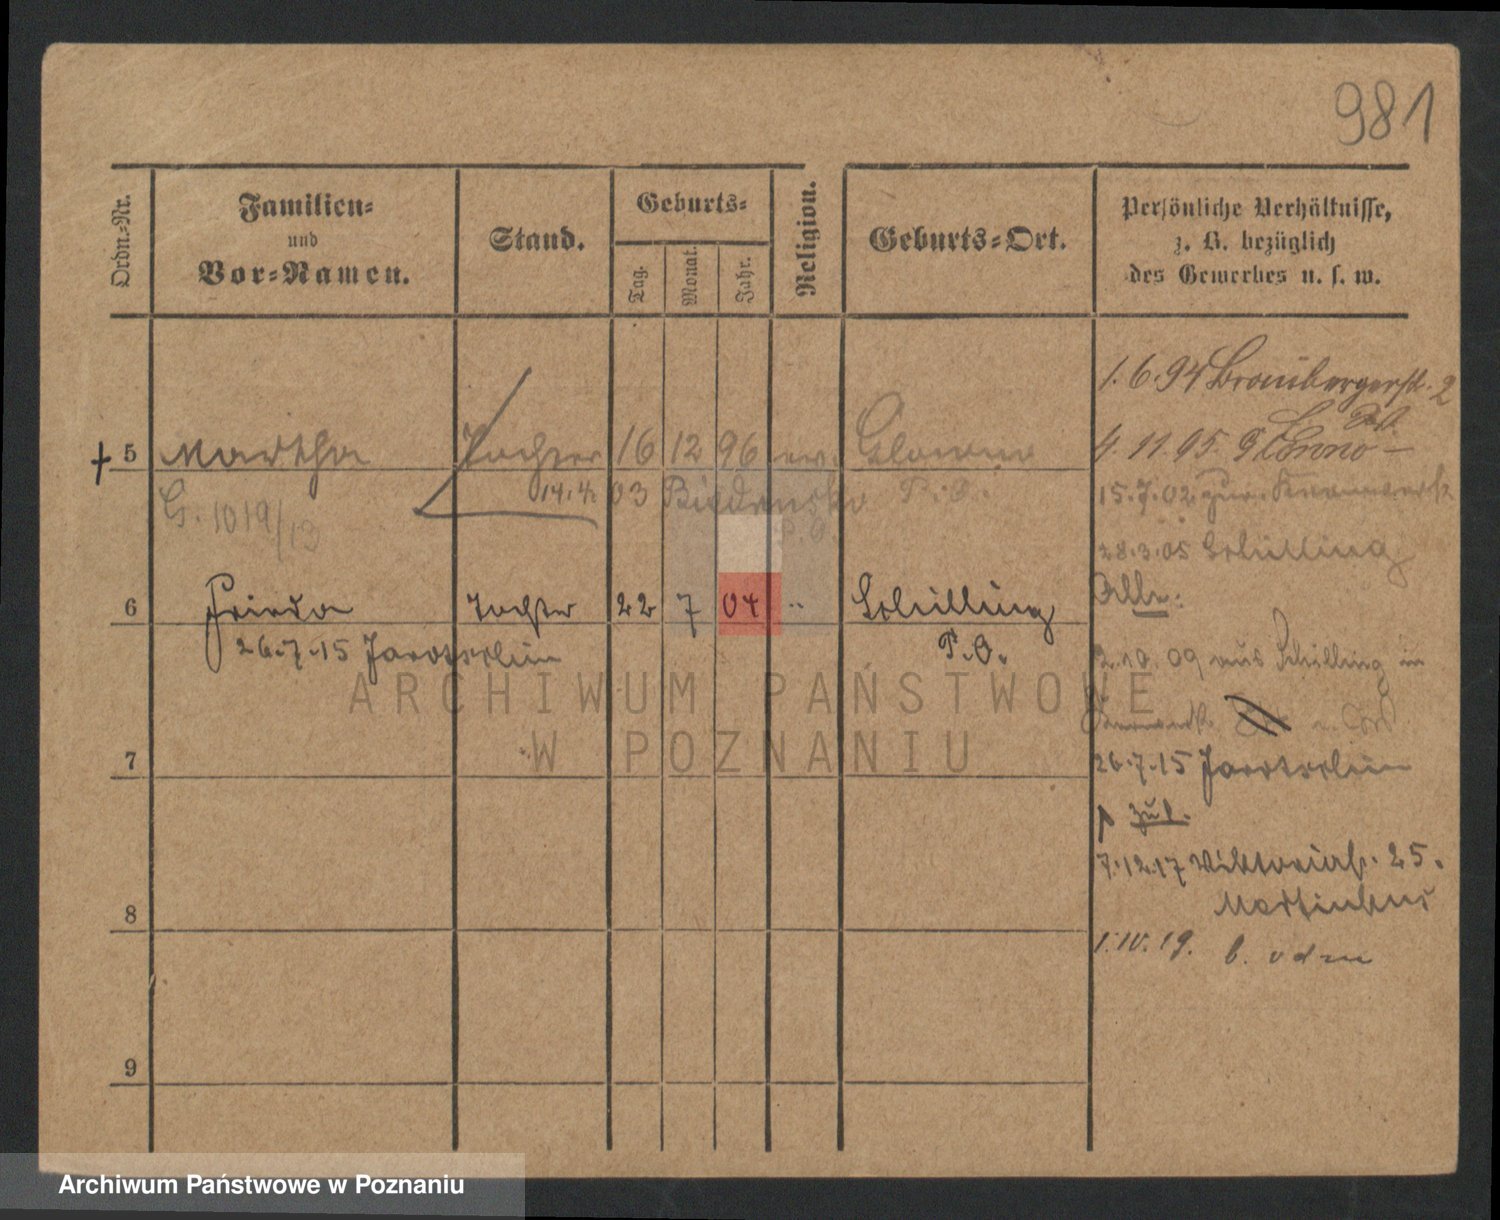 981
Ordn.-Nr.
Familien-
und
Vor-Namen.
Stand.
Geburts-
Tag.
Monat.
Jahr.
Religion.
Geburts-Ort.
Persönliche Verhältnisse,
z. B. bezüglich
des Gewerbes u. s. w.
1. 6. 94 Brombergerstr. 2
4. 11. 95.
5 Martha Tochter 16 12 96 ev. Glowno
14. 4. 03 Biedrusko P. O.
P. O.
G. 1019/13
15. 7. 02 zur.
28. 3. 05 Schilling
Alle:
6 Frieda Tochter 22 7 04 " Schilling
P. O.
26. 7. 15 Jarotschin
2. 10. 09 aus Schilling in
7
26. 7. 15 Jarotschin
zuk.
7. 12. 17 Viktoriastr. 25.
8
1. IV. 19. b.
9
ARCHIWUM PAŃSTWOWE
W POZNANIU
Archiwum Państwowe w Poznaniu